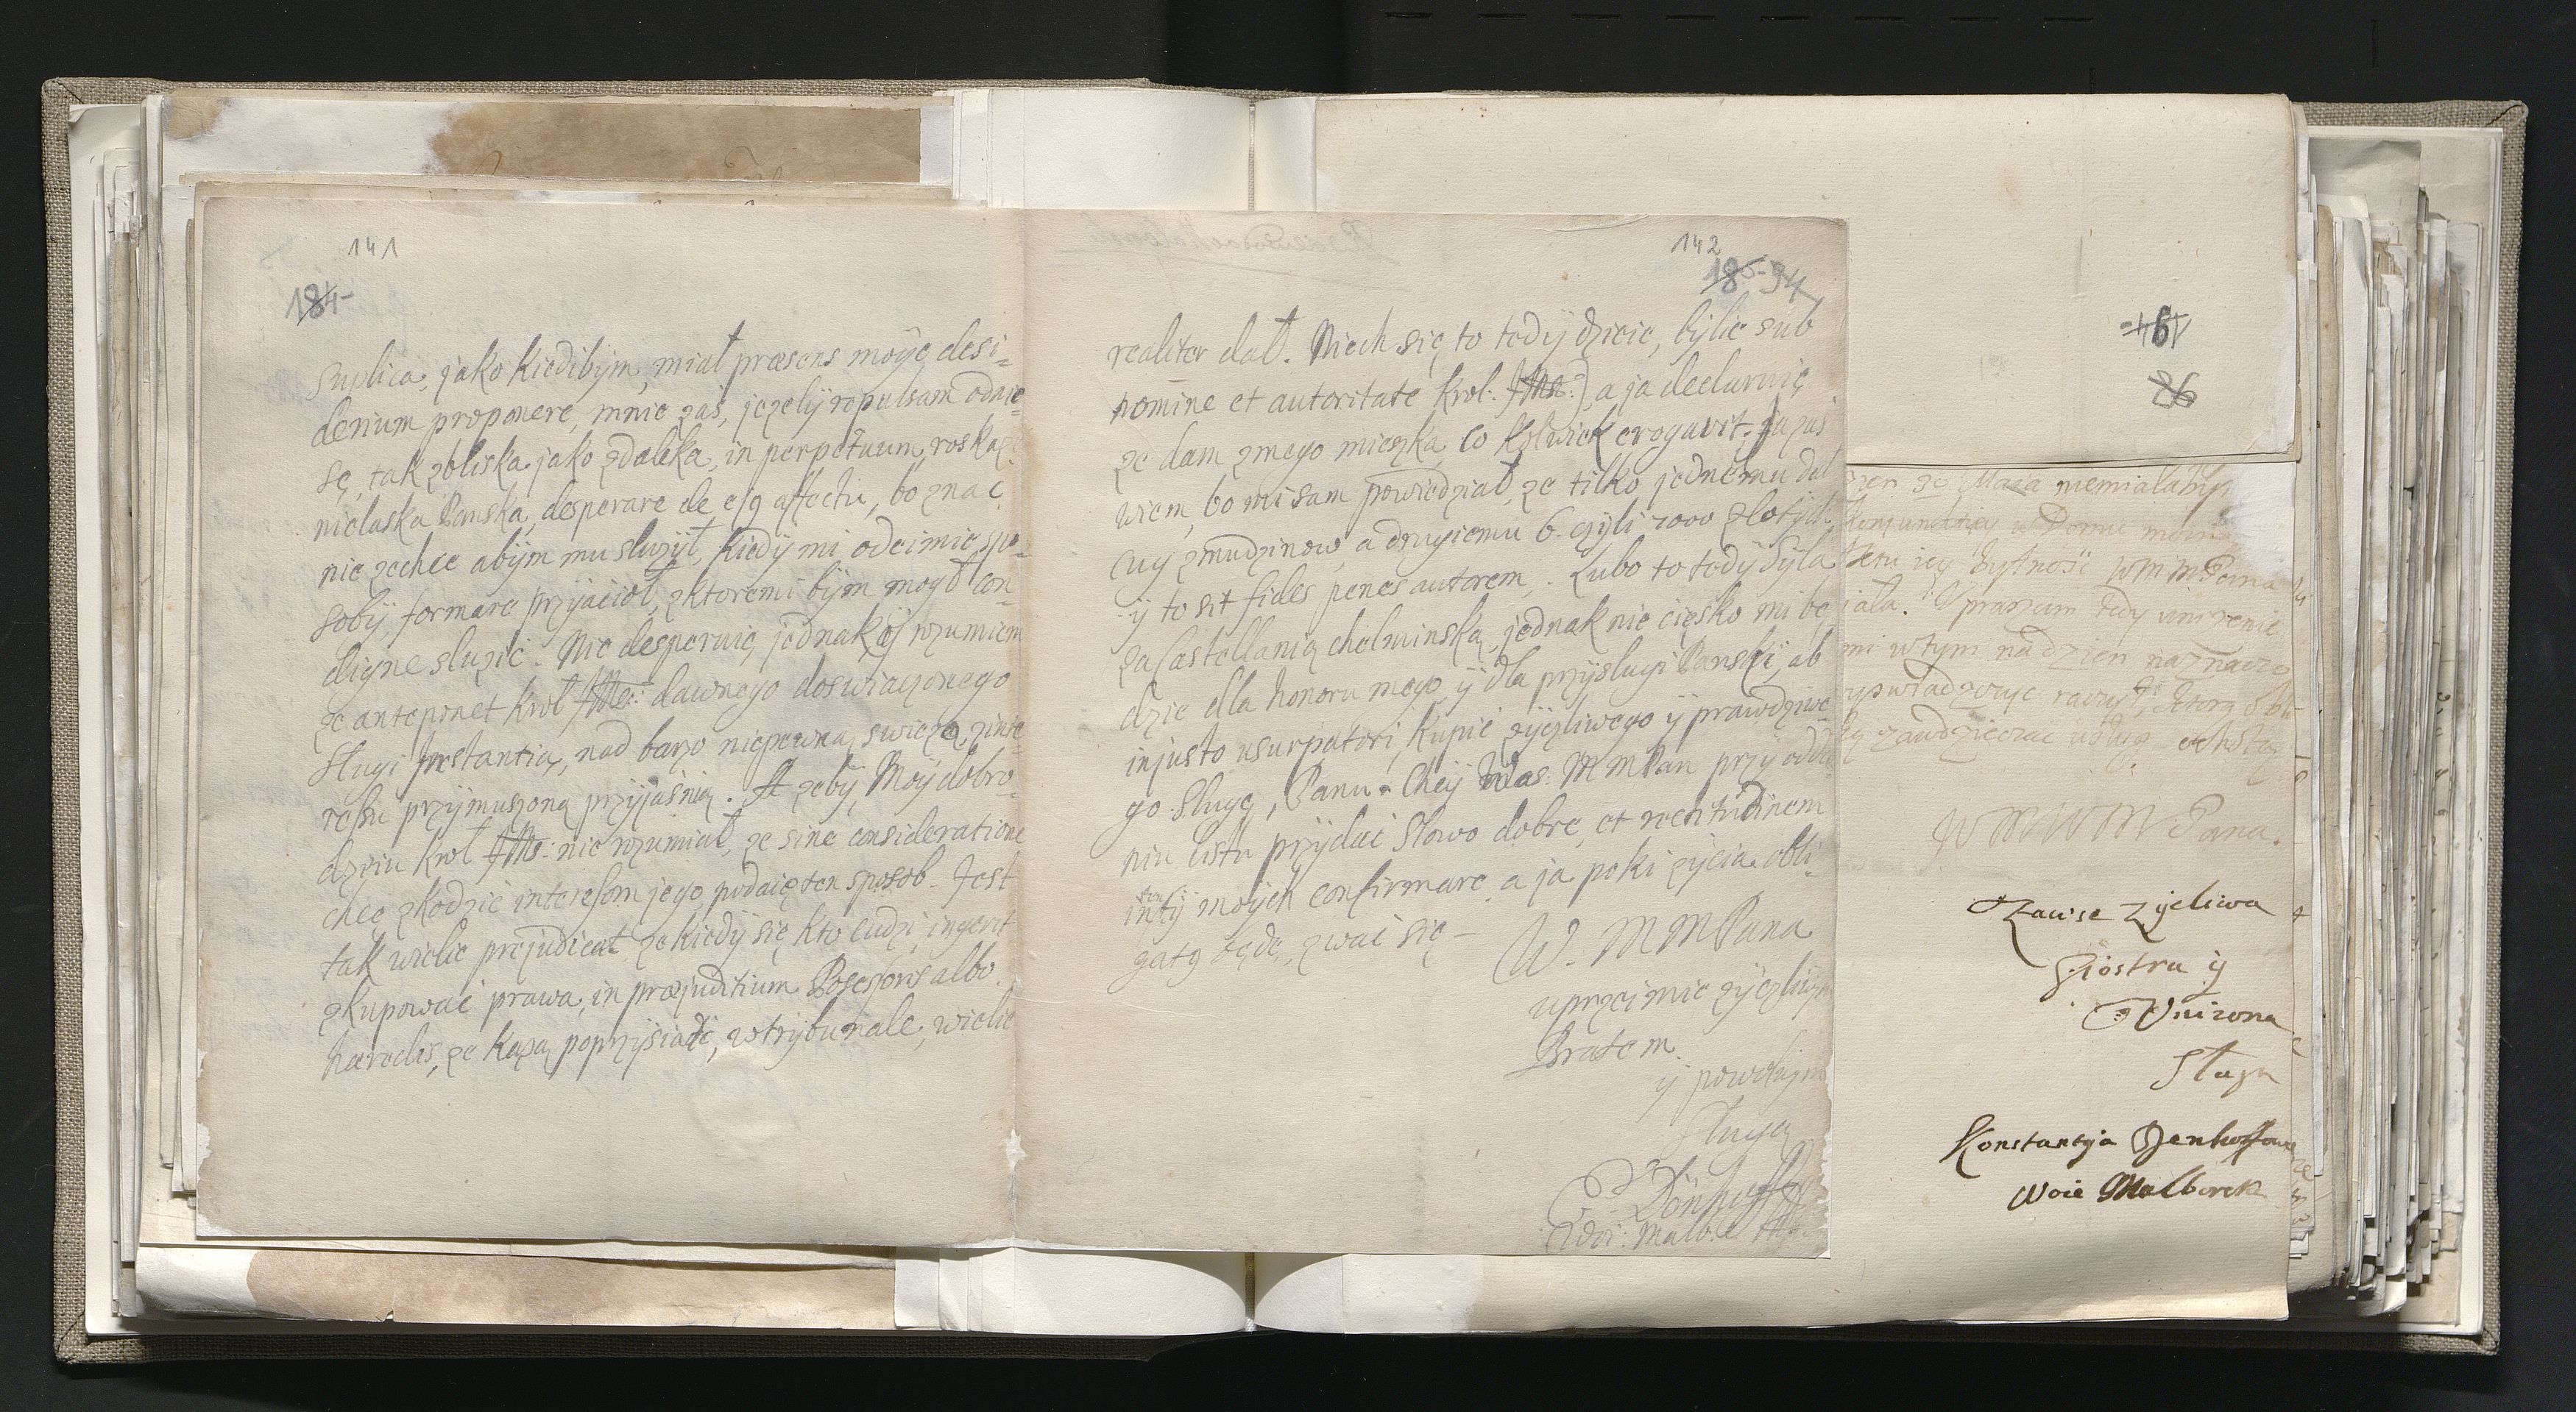 141
184
Suplica, jako kiedibÿm, miał præsens moÿę desi=
derium proponere, mnie zaś, jezelÿ repulsam odnie=
sę, tak zbliska jako zdaleka, in perpetuum, roskaze
nielaska Panska, desperare de ejg affectu, bo znac
nie zechce abÿm mu służył, kiedÿ mi odeimie spo=
sobÿ, formare przÿjaciół, zktoremi bÿm mogł con=
digne służić. Nie desperuię jednak, ÿ rozumiem
ze anteponet Krol JMs: dawnego doswiaczonego
Slugi Instantią, nad barzo niepewną, swieżą, zinte=
ressu przÿmuszoną przÿjaśnią. A zebÿ, Moÿ dobro=
dzeiu Krol JMs: nie rozumiał, ze sine consideratione
chcę zkodzić interesom jego, podaię ten sposob. Jest
tak wielie prejudicat, ze kiedÿ się kto ludzi ingerit
zkupować prawa, in præjuditium Posesoris albo
hæredis, ze każą poprzÿsiadź, w trÿbunale, wielie
142
185 94
realiter dał. Niech się to tedÿ dzieie, bÿlie sub
nomine et autoritate Krol: JMs:, a ja declaruię
ze dam zmego mieszka co kolwiek erogavit. Ja zaś
wiem, bo mi sam powiedział, ze tilko jednemu dał
cug zmudzinow, a drugiemu 6. czÿli 7000 złotÿch
ÿ to sit fides penes autorem. Lubo to tedÿ sÿla
za Castellanią chelminską, jednak nie cięsko mi bę
dzie dla honoru mego, ÿ dla przÿslugi Panskiÿ, ab
injusto usurpatori, kupić zÿczliwego ÿ prawdziwe=
go Slugę, Panu. Cheÿ Was: M M Pan przÿ odda
niu listu przÿdać Słowo dobre, et rectitudinem
intentÿ moÿch confirmare, a ja poki zÿcia. obli=
gatg będę, zwać się
W. M M Pana
uprzeimie zÿczliwÿm
Bratem
ÿ powolnÿm
Slugą
Dönhoff
Woi: Malb:
46
86
zien 30 Maia niemiala by
w Domu
Iey bytność W M M Pana
iala. Upraszam tedy unizenie
mi wtym nadzien naznaczo
W M W M Pana.
Zawse zyćliwa
Siostra ÿ
Unizona
Sługa
Konstancÿja Denhoffowa
Woie Malborsk